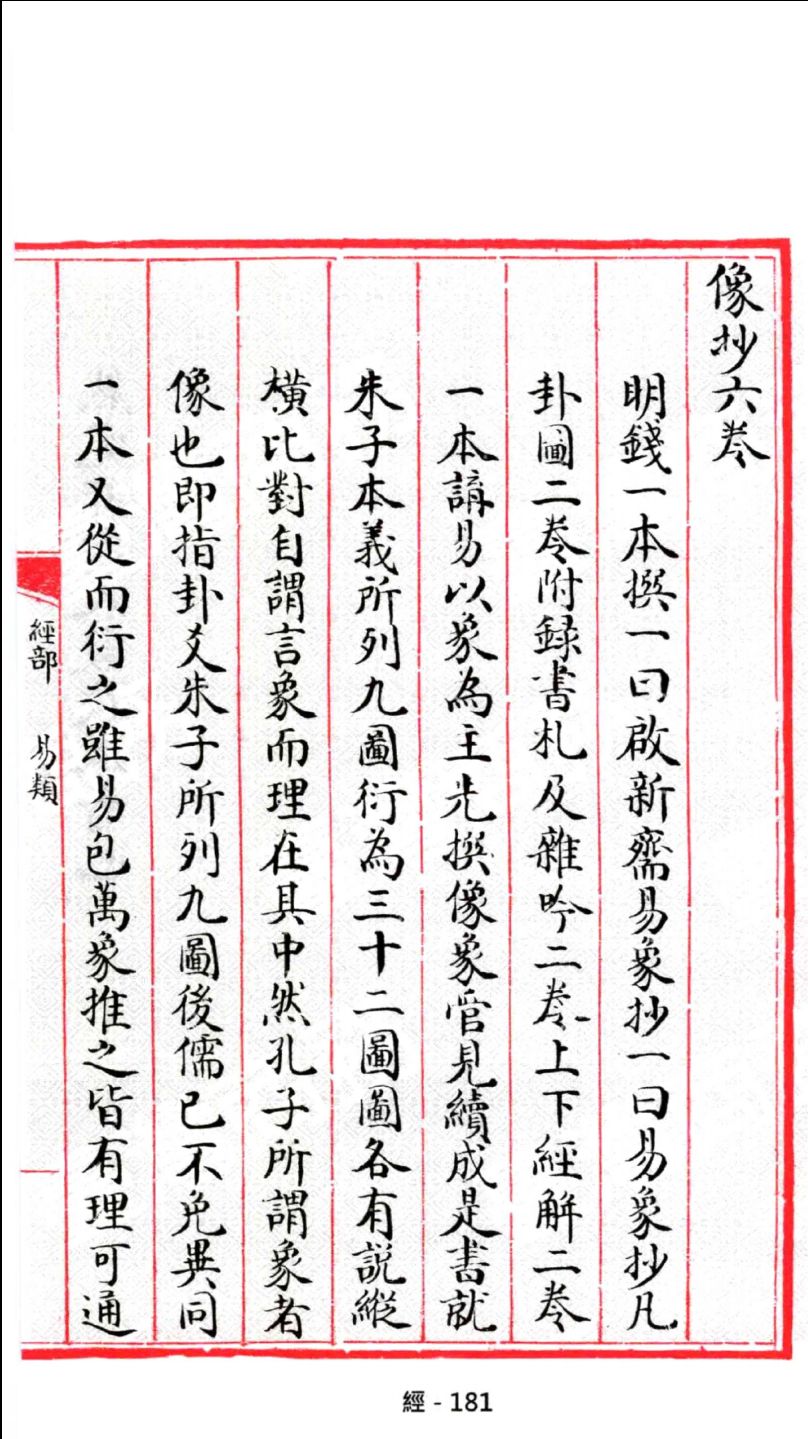 像抄六卷
明錢一本撰一曰啟新齋易象抄一曰易象抄凡
卦圖二卷附録書札及雜吟二卷上下經解二卷
一本講易以象為主先撰像象管見續成是書就
朱子本義所列九圖衍為三十二圖圖各有說縱
橫比對自謂言象而理在其中然孔子所謂象者
像也即指卦爻朱子所列九圖後儒已不免異同
一本又從而衍之雖易包萬象推之皆有理可通
經部 易類
經 - 181